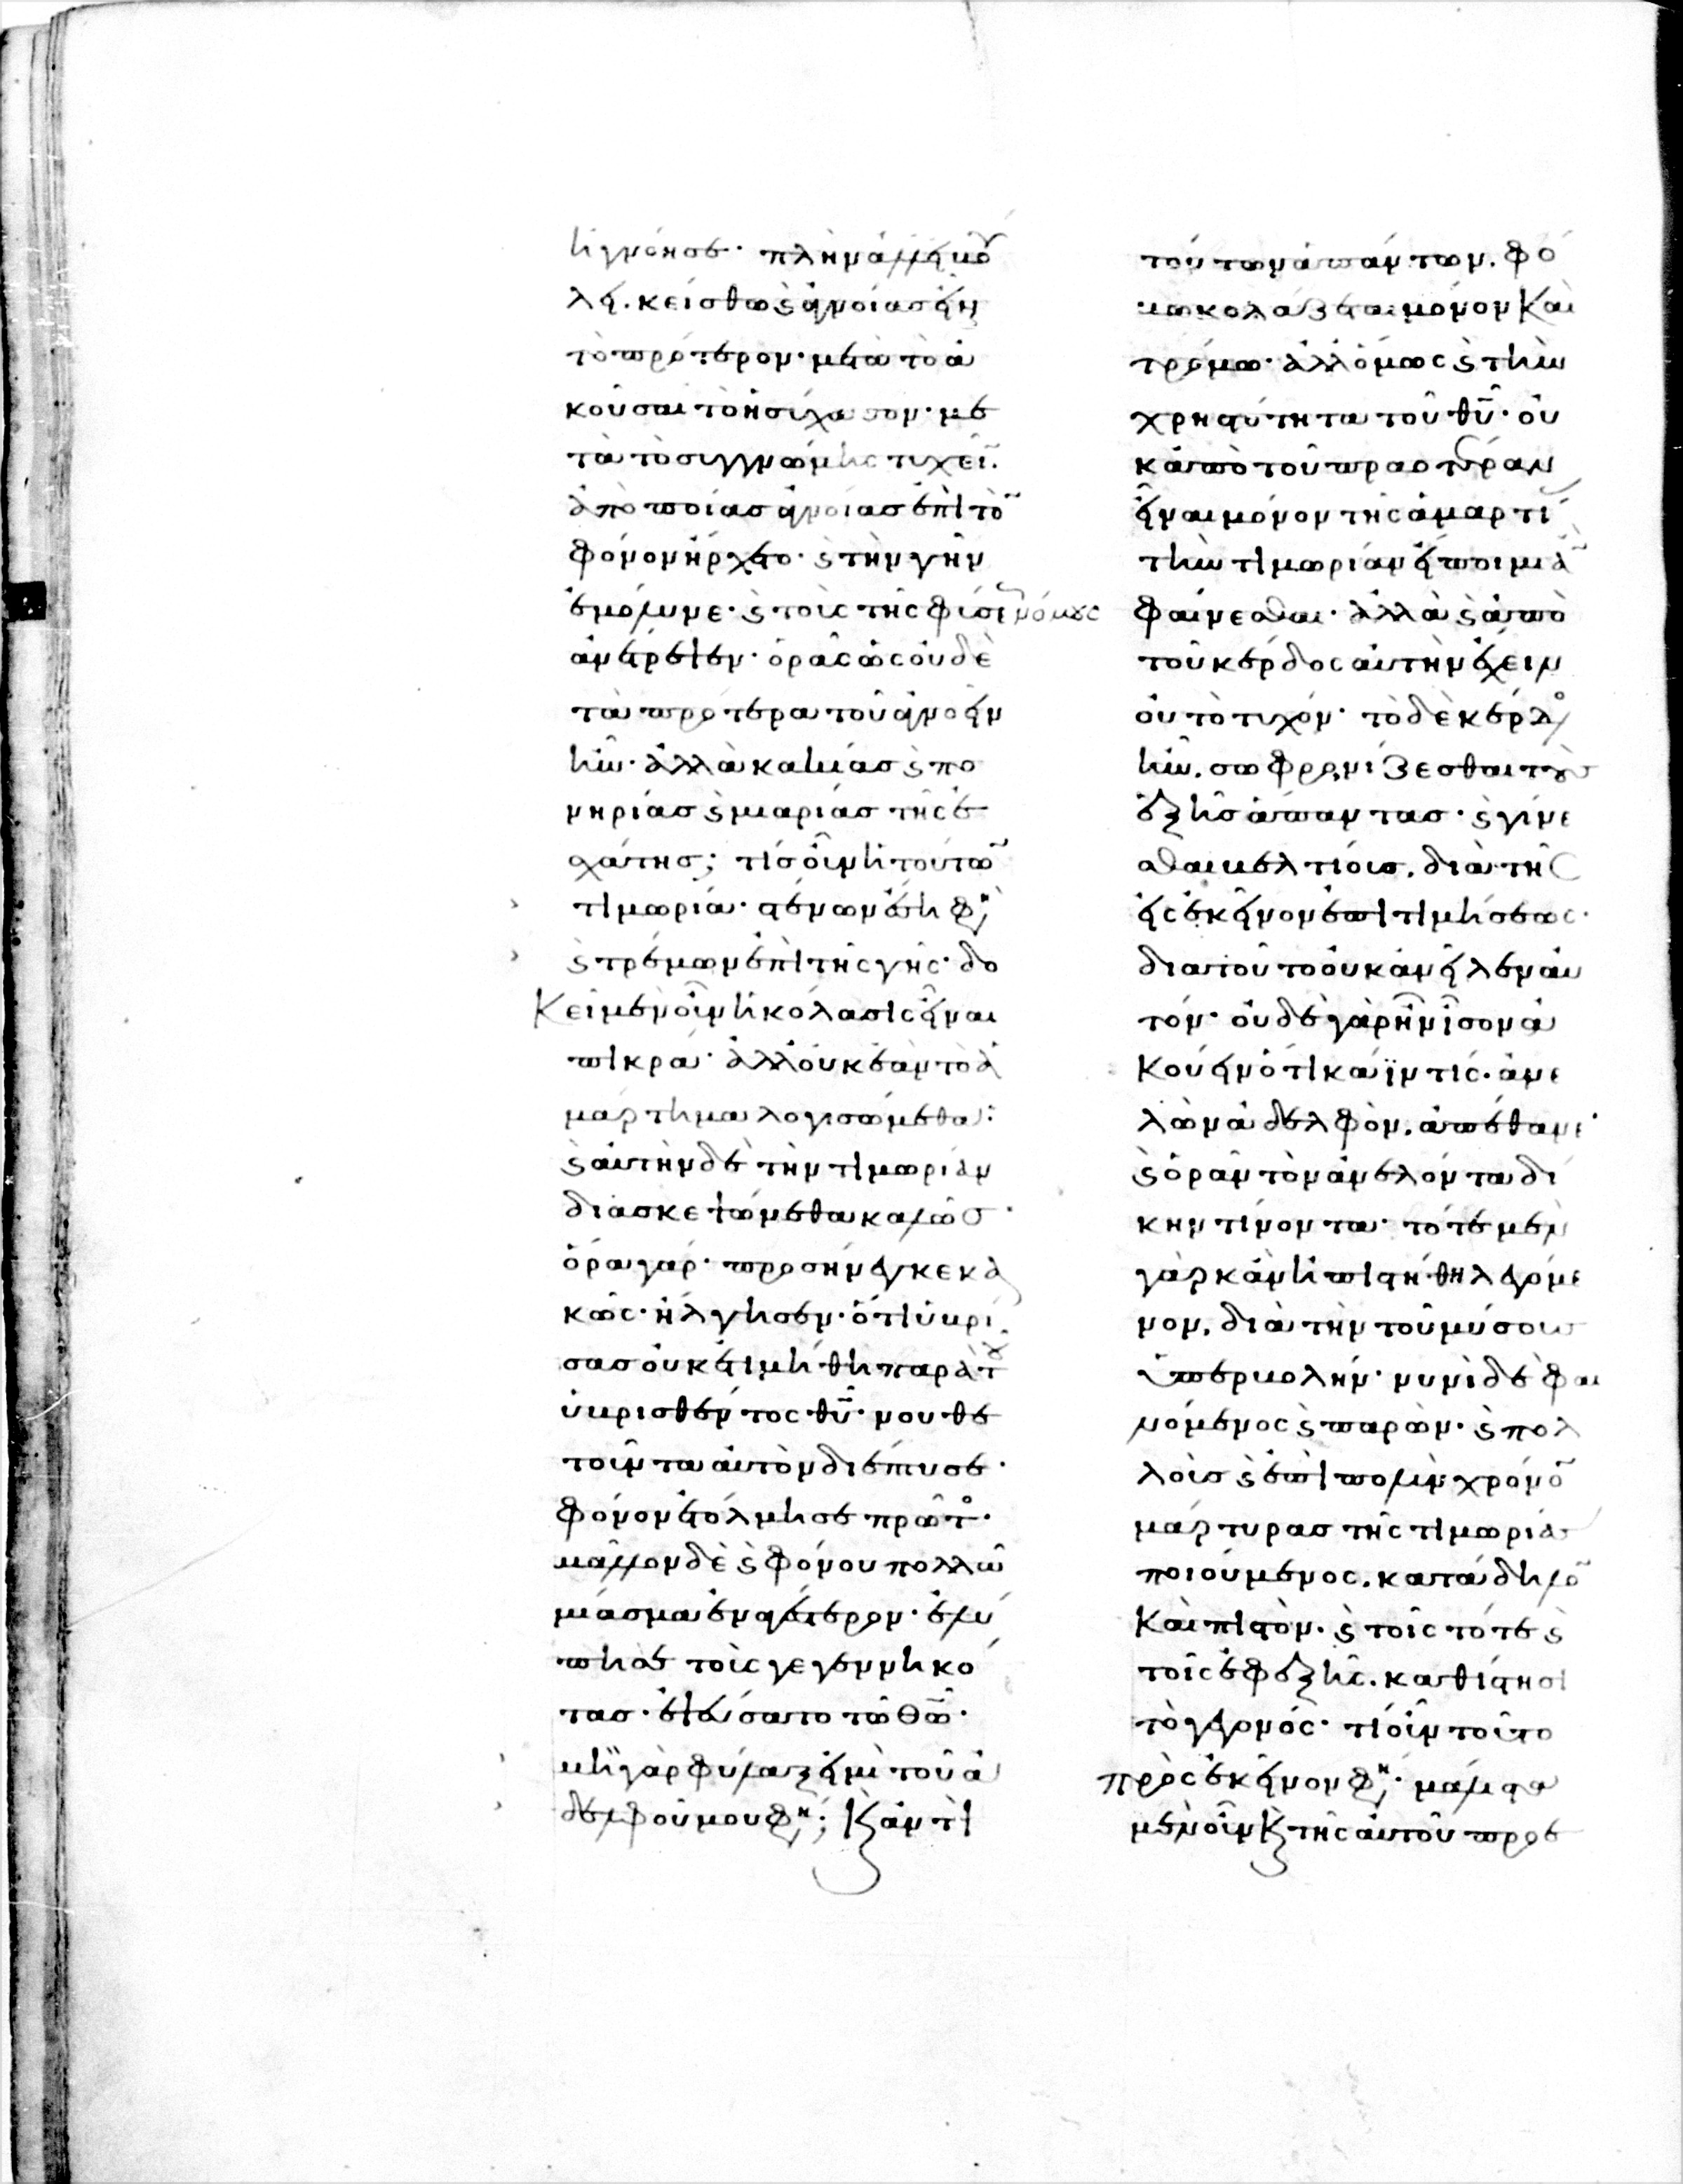 ἠγνόησε· πλὴν ἀλλ' εἰ βού
λει. κείσθω καὶ ἀγνοίας εἶναι
τὸ πρότερον· μετὰ τὸ ἀ
κοῦσαι τὸ ἡσύχασον· με
τὰ τὸ συγγνώμης τυχεῖν.
ἀπὸ ποίας ἀγνοίας ἐπὶ τὸν
φόνον ἤρχετο· καὶ τὴν γῆν
ἐμόλυνε· καὶ τοὺς τῆς φύσεως νόμους
ἀνέτρεπεν· ὁρᾶς ὡς οὐδὲ
τὰ πρότερα τοῦ ἀγνοεῖν
ἦν· ἀλλὰ κακίας καὶ πο
νηρίας καὶ μιαρίας τῆς ἐ
σχάτης; τίς οὖν ἡ τούτων
τιμωρία· στένων ἔσῃ φησὶ
καὶ τρέμων ἐπὶ τῆς γῆς· δο
κεῖ μὲν οὖν ἡ κόλασις εἶναι
πικρά· ἀλλ' οὐκ ἐὰν τὸ ἁ
μάρτημα λογισώμεθα·
καὶ αὐτὴν δὲ τὴν τιμωρίαν
διασκεψώμεθα καλῶς·
ὅρα γάρ· προσήνεγκε κα
κῶς· ἤλγησεν· ὅτι ὑβρί
σας οὐκ ἐτιμήθη παρὰ τοῦ
ὑβρισθέντος θυ· νουθε
τοῦντα αὐτὸν διέπτυσε·
φόνον ἐτόλμησε πρῶτος·
μᾶλλον δὲ καὶ φόνου πολλῷ
μίασμα ἐναγέστερον· ἐλύ
πησε τοὺς γεγεννηκό
τας· ἐψεύσατο τῷ θῶ·
μὴ γὰρ φύλαξ εἰμὶ τοῦ ἀ
δελφοῦ μου φησί; καὶ ἀντὶ
τούτων ἁπάντων. φό
βῳ κολάζεται μόνον καὶ
τρόμῳ· ἀλλ' ὅμως καὶ τὴν
χρηστότητα τοῦ θυ· οὐ
κ ἀπὸ τοῦ πραοτέραν
εἶναι μόνον τῆς ἁμαρτίας
τὴν τιμωρίαν ἔποιμι ἂν
φαίνεσθαι· ἀλλὰ καὶ ἀπὸ
τοῦ κέρδος αὐτὴν ἔχειν
οὐ τὸ τυχόν· τὸ δὲ κέρδος
ἦν. σωφρονίζεσθαι τοὺς
ἑξῆς ἅπαντας· καὶ γίνε
σθαι βελτίους. διὰ τῆς
εἰς ἐκεῖνον ἐπιτιμήσεως·
διὰ τοῦτο οὐκ ἀνεῖλεν αὐ
τόν· οὐδὲ γὰρ ἦν ἴσον ἀ
κούειν ὅτι κάϊν τις. ἀνε
λὼν ἀδελφὸν. ἀπέθανε·
καὶ ὁρᾶν τὸν ἀνελόντα δί
κην τίνοντα· τότε μὲν
γὰρ κἂν ἠπιστήθη λεγόμε
νον. διὰ τὴν τοῦ μύσους
ὑπερβολήν· νυνὶ δὲ φαι
νόμενος καὶ παρὼν· καὶ πολ
λοὺς καὶ ἐπὶ πολὺν χρόνον
μάρτυρας τῆς τιμωρίας
ποιούμενος. κατάδηλον
καὶ πιστὸν. καὶ τοῖς τότε καὶ
τοῖς ἐφεξῆς. καθίστησι
τὸ γεγονός· τί οὖν τοῦτο
πρὸς ἐκεῖνον φησί· μάλιστα
μὲν οὖν καὶ τῆς αὐτοῦ προε